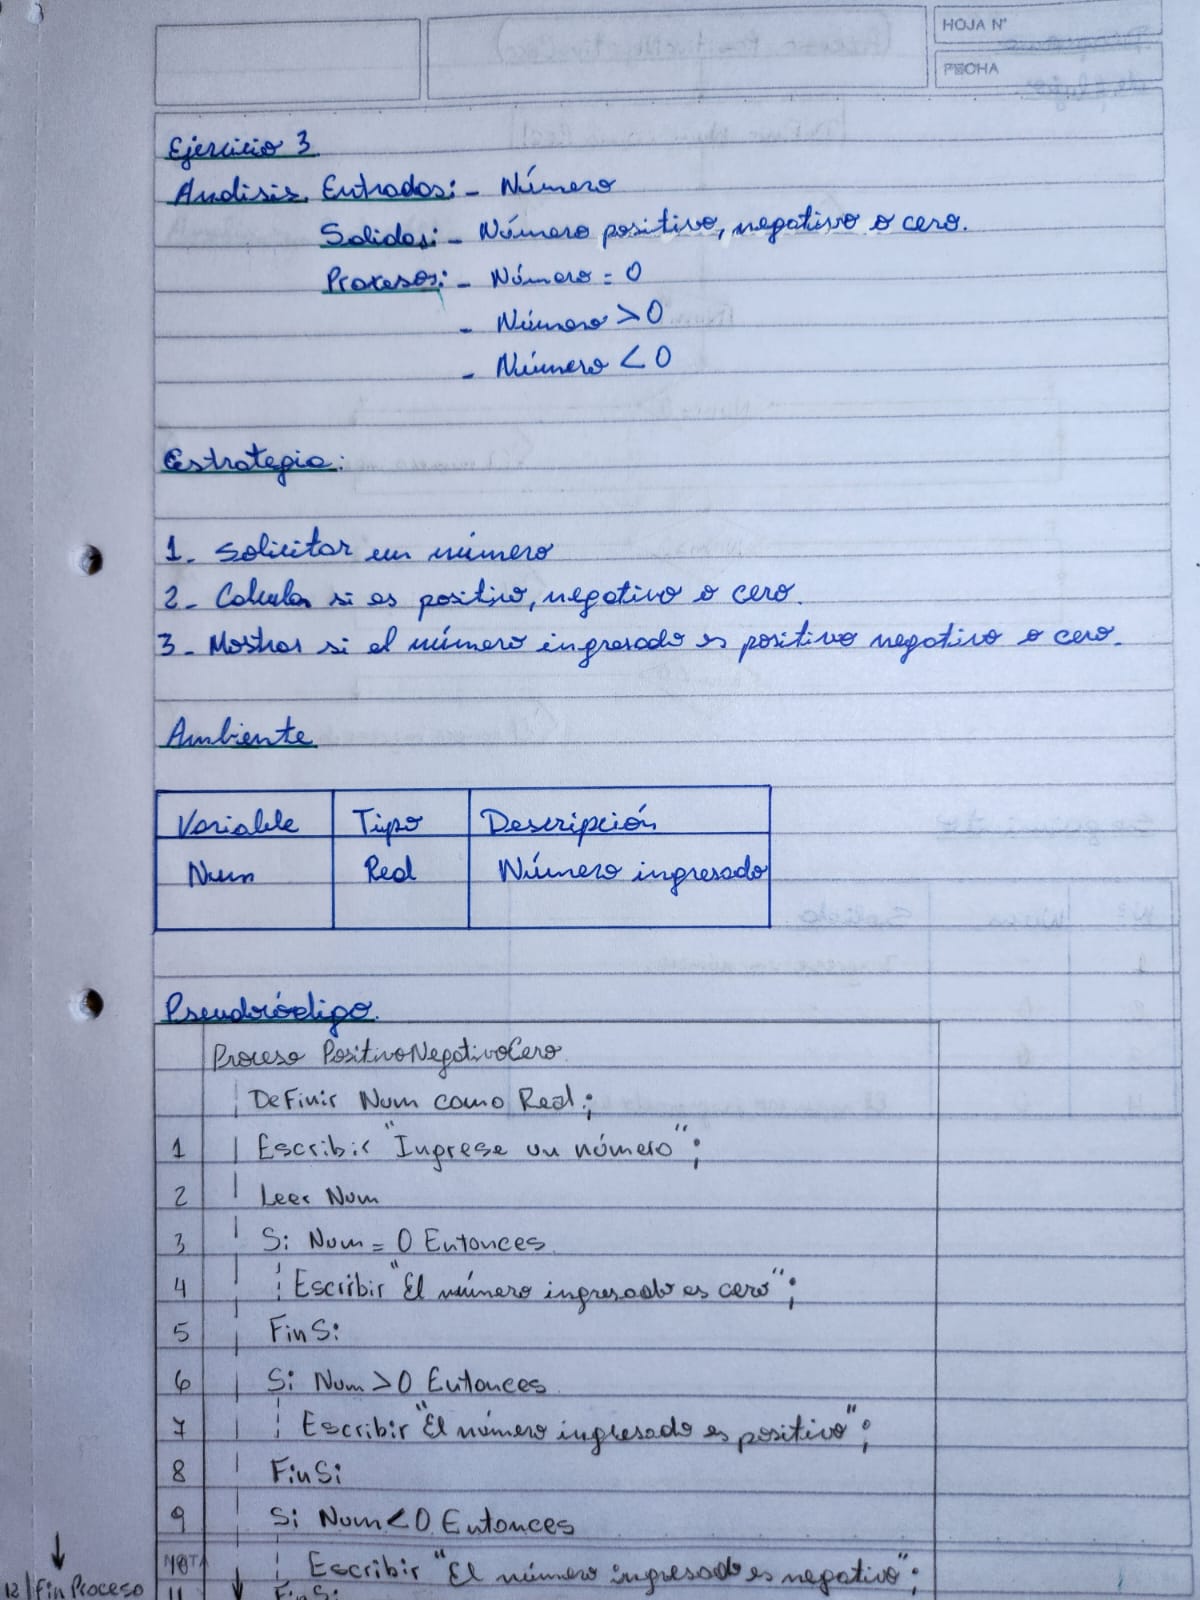 HOJA N°
FECHA
Ejercicio 3
Análisis. Entradas: - Número
Salidas: - Número positivo, negativo o cero.
Procesos: - Número = 0
- Número > 0
- Número < 0
Estrategia:
1- Solicitar un número
2- Calcular si es positivo, negativo o cero.
3- Mostrar si el número ingresado es positivo negativo o cero.
Ambiente
Variable Tipo Descripción
Num Real Número ingresado
Pseudocódigo.
Proceso PositivoNegativoCero
Definir Num como Real;
1 Escribir "Ingrese un número";
2 Leer Num
3 Si Num = 0 Entonces
4 Escribir "El número ingresado es cero";
5 FinSi
6 Si Num > 0 Entonces
7 Escribir "El número ingresado es positivo";
8 FinSi
9 Si Num < 0 Entonces
10 Escribir "El número ingresado es negativo";
11 FinSi
12 Fin Proceso